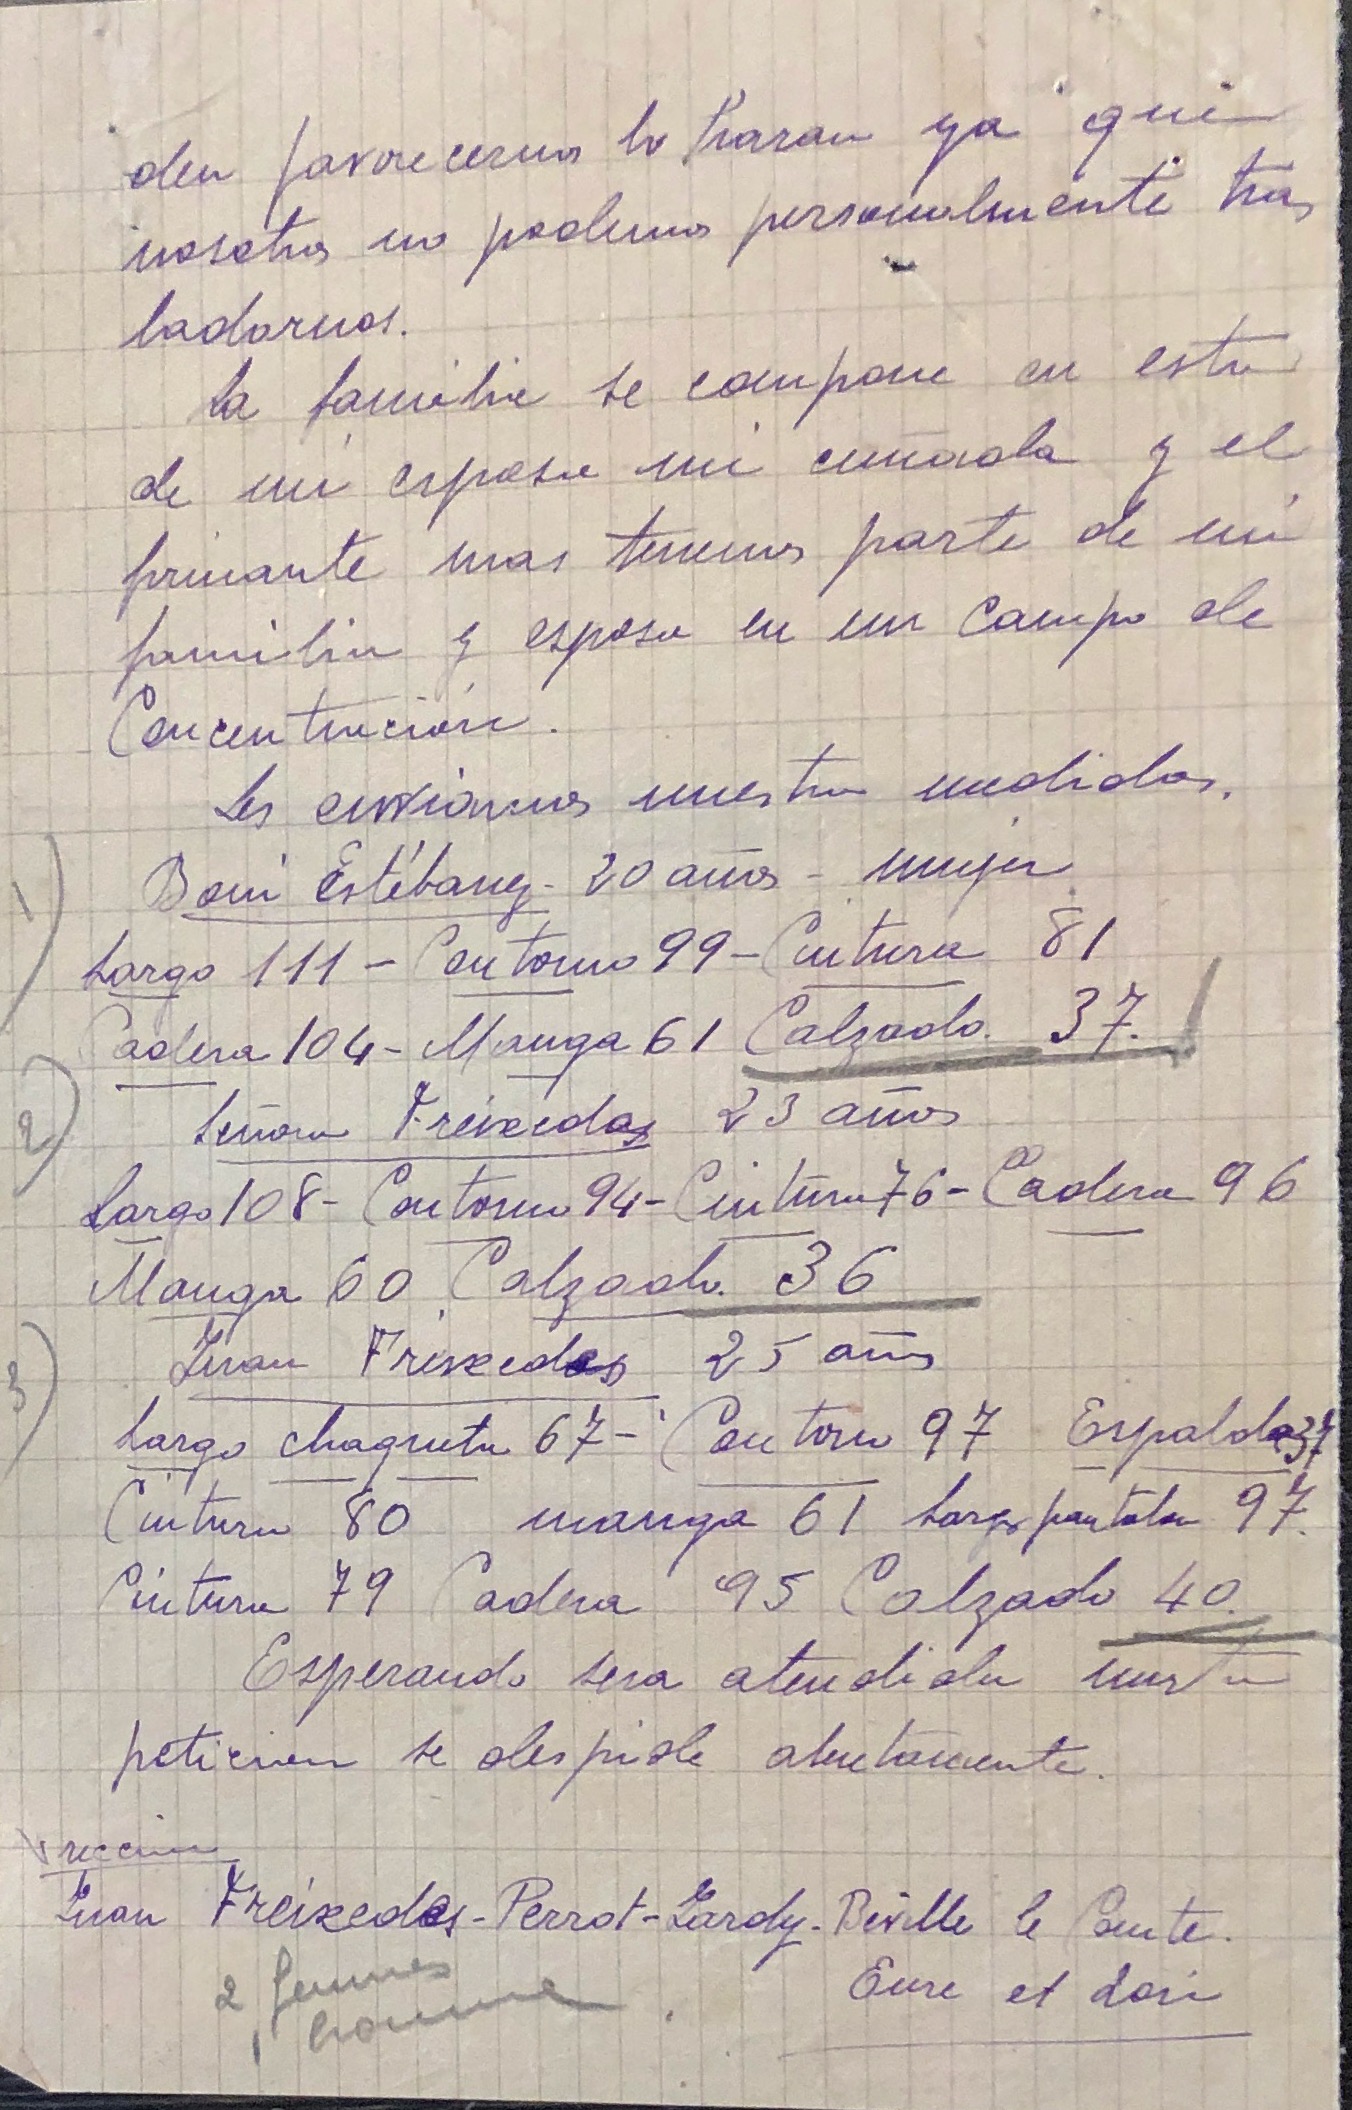 den favorecernos lo haran ya que
nosotros no podemos personalmente tras
ladarnos.
La familia se compone en esta
de mi esposa mi cuñada y el
firmante mas tenemos parte de mi
familia y esposa en un Campo de
Concentración.
Les enviamos nuestra medidas.
1) Boni Estébanez - 20 años - mujer
Largo 111 - Contorno 99 - Cintura 81
Cadera 104 - Manga 61 Calzado. 37.
2) Señora Freixedas 23 años
Largo 108 - Contorno 94 - Cintura 76 - Cadera 96
Manga 60. Calzado. 36
3) Juan Freixedas 25 años
Largo chaqueta 67 - Contorno 97 Espalda 37
Cintura 80 manga 61 Largo pantalon 97.
Cintura 79 Cadera 95 Calzado 40.
Esperando sera atendida nuestra
peticion se despide atentamente.
Juan Freixedas - Perrot - Lardy - Béville le Comte.
Eure et Loir
2 femmes
1 homme